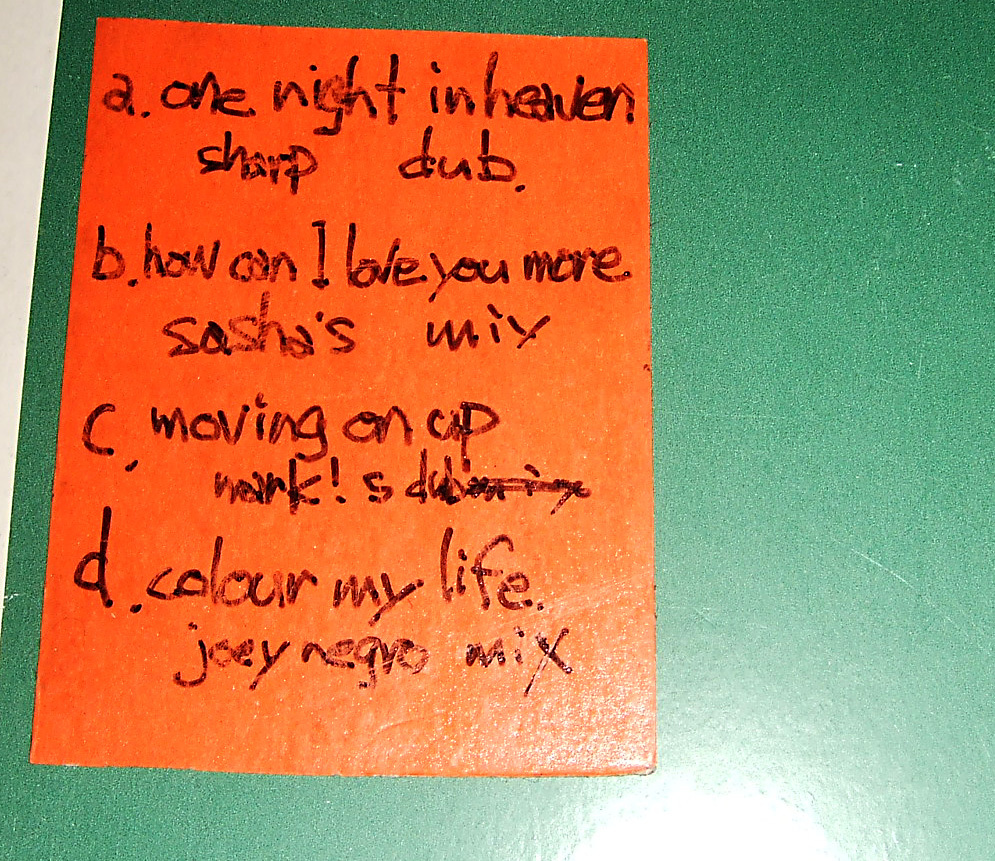 a. one night in heaven
sharp dub.
b. how can I love you more
sasha's mix
c. moving on up
mark! s dub
d. colour my life.
joey negro mix